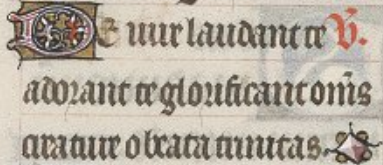 DE iure laudant te V.
adorant te glorificant om̅s
creature o beata trinitas.